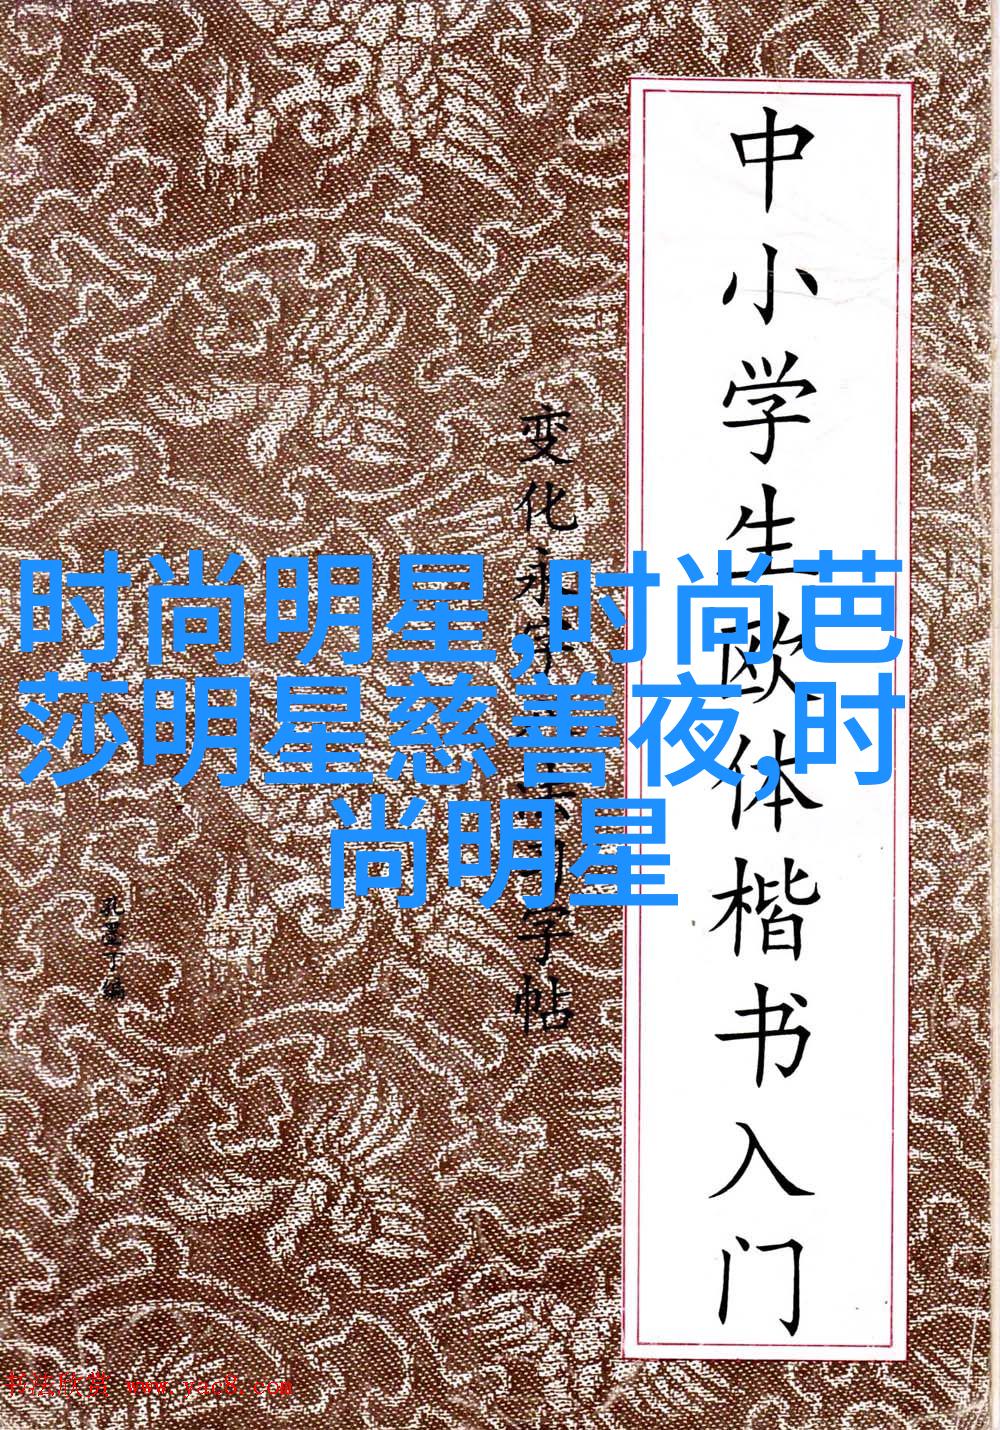 中小学生欧体楷书入门
变化永字八法习字帖
孔墨丁编
时尚明星,时尚芭
莎明星慈善夜,时
尚明星
书法欣赏 www.yac8.com